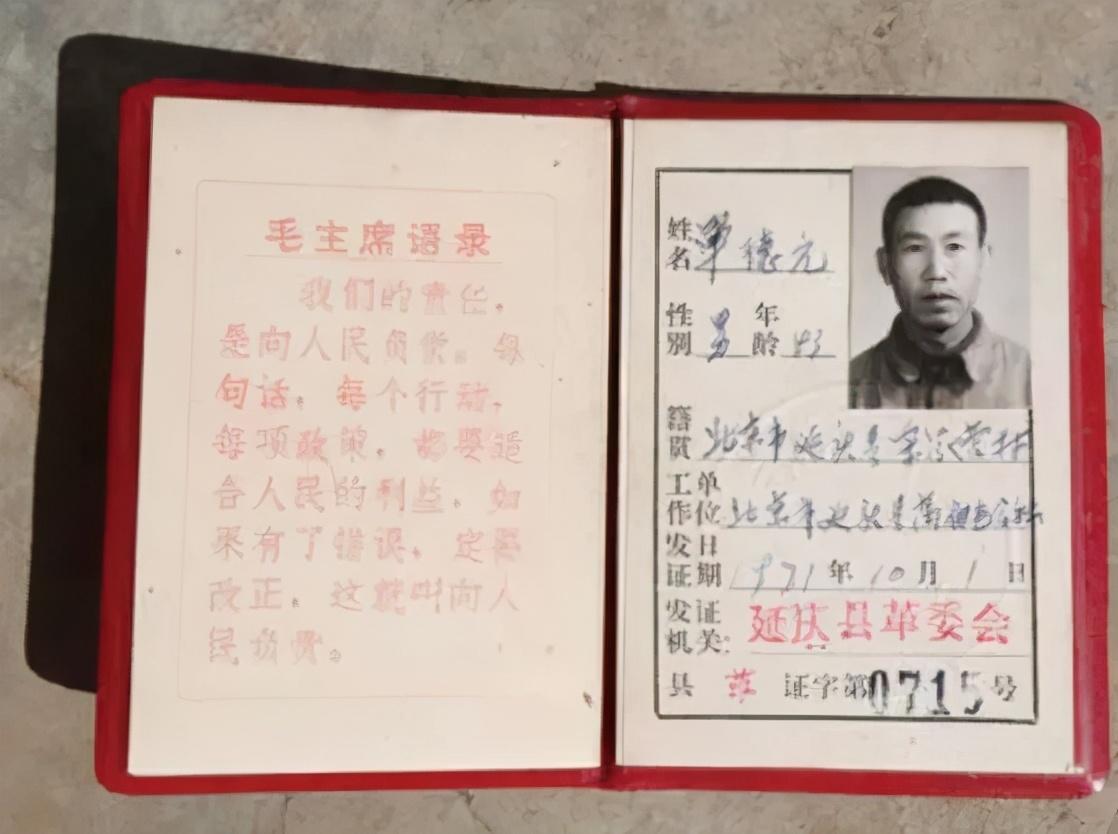 毛主席语录
我们的责任，
是向人民负责。每
句话，每个行动，
每项政策，都要适
合人民的利益，如
果有了错误，定要
改正，这就叫向人
民负责。
姓名 单德元
性别 男 年龄 43
籍贯 北京市延庆县
工作单位 北京市延庆县
发证日期 1971年10月1日
发证机关：延庆县革委会
县 革 证字第0715号